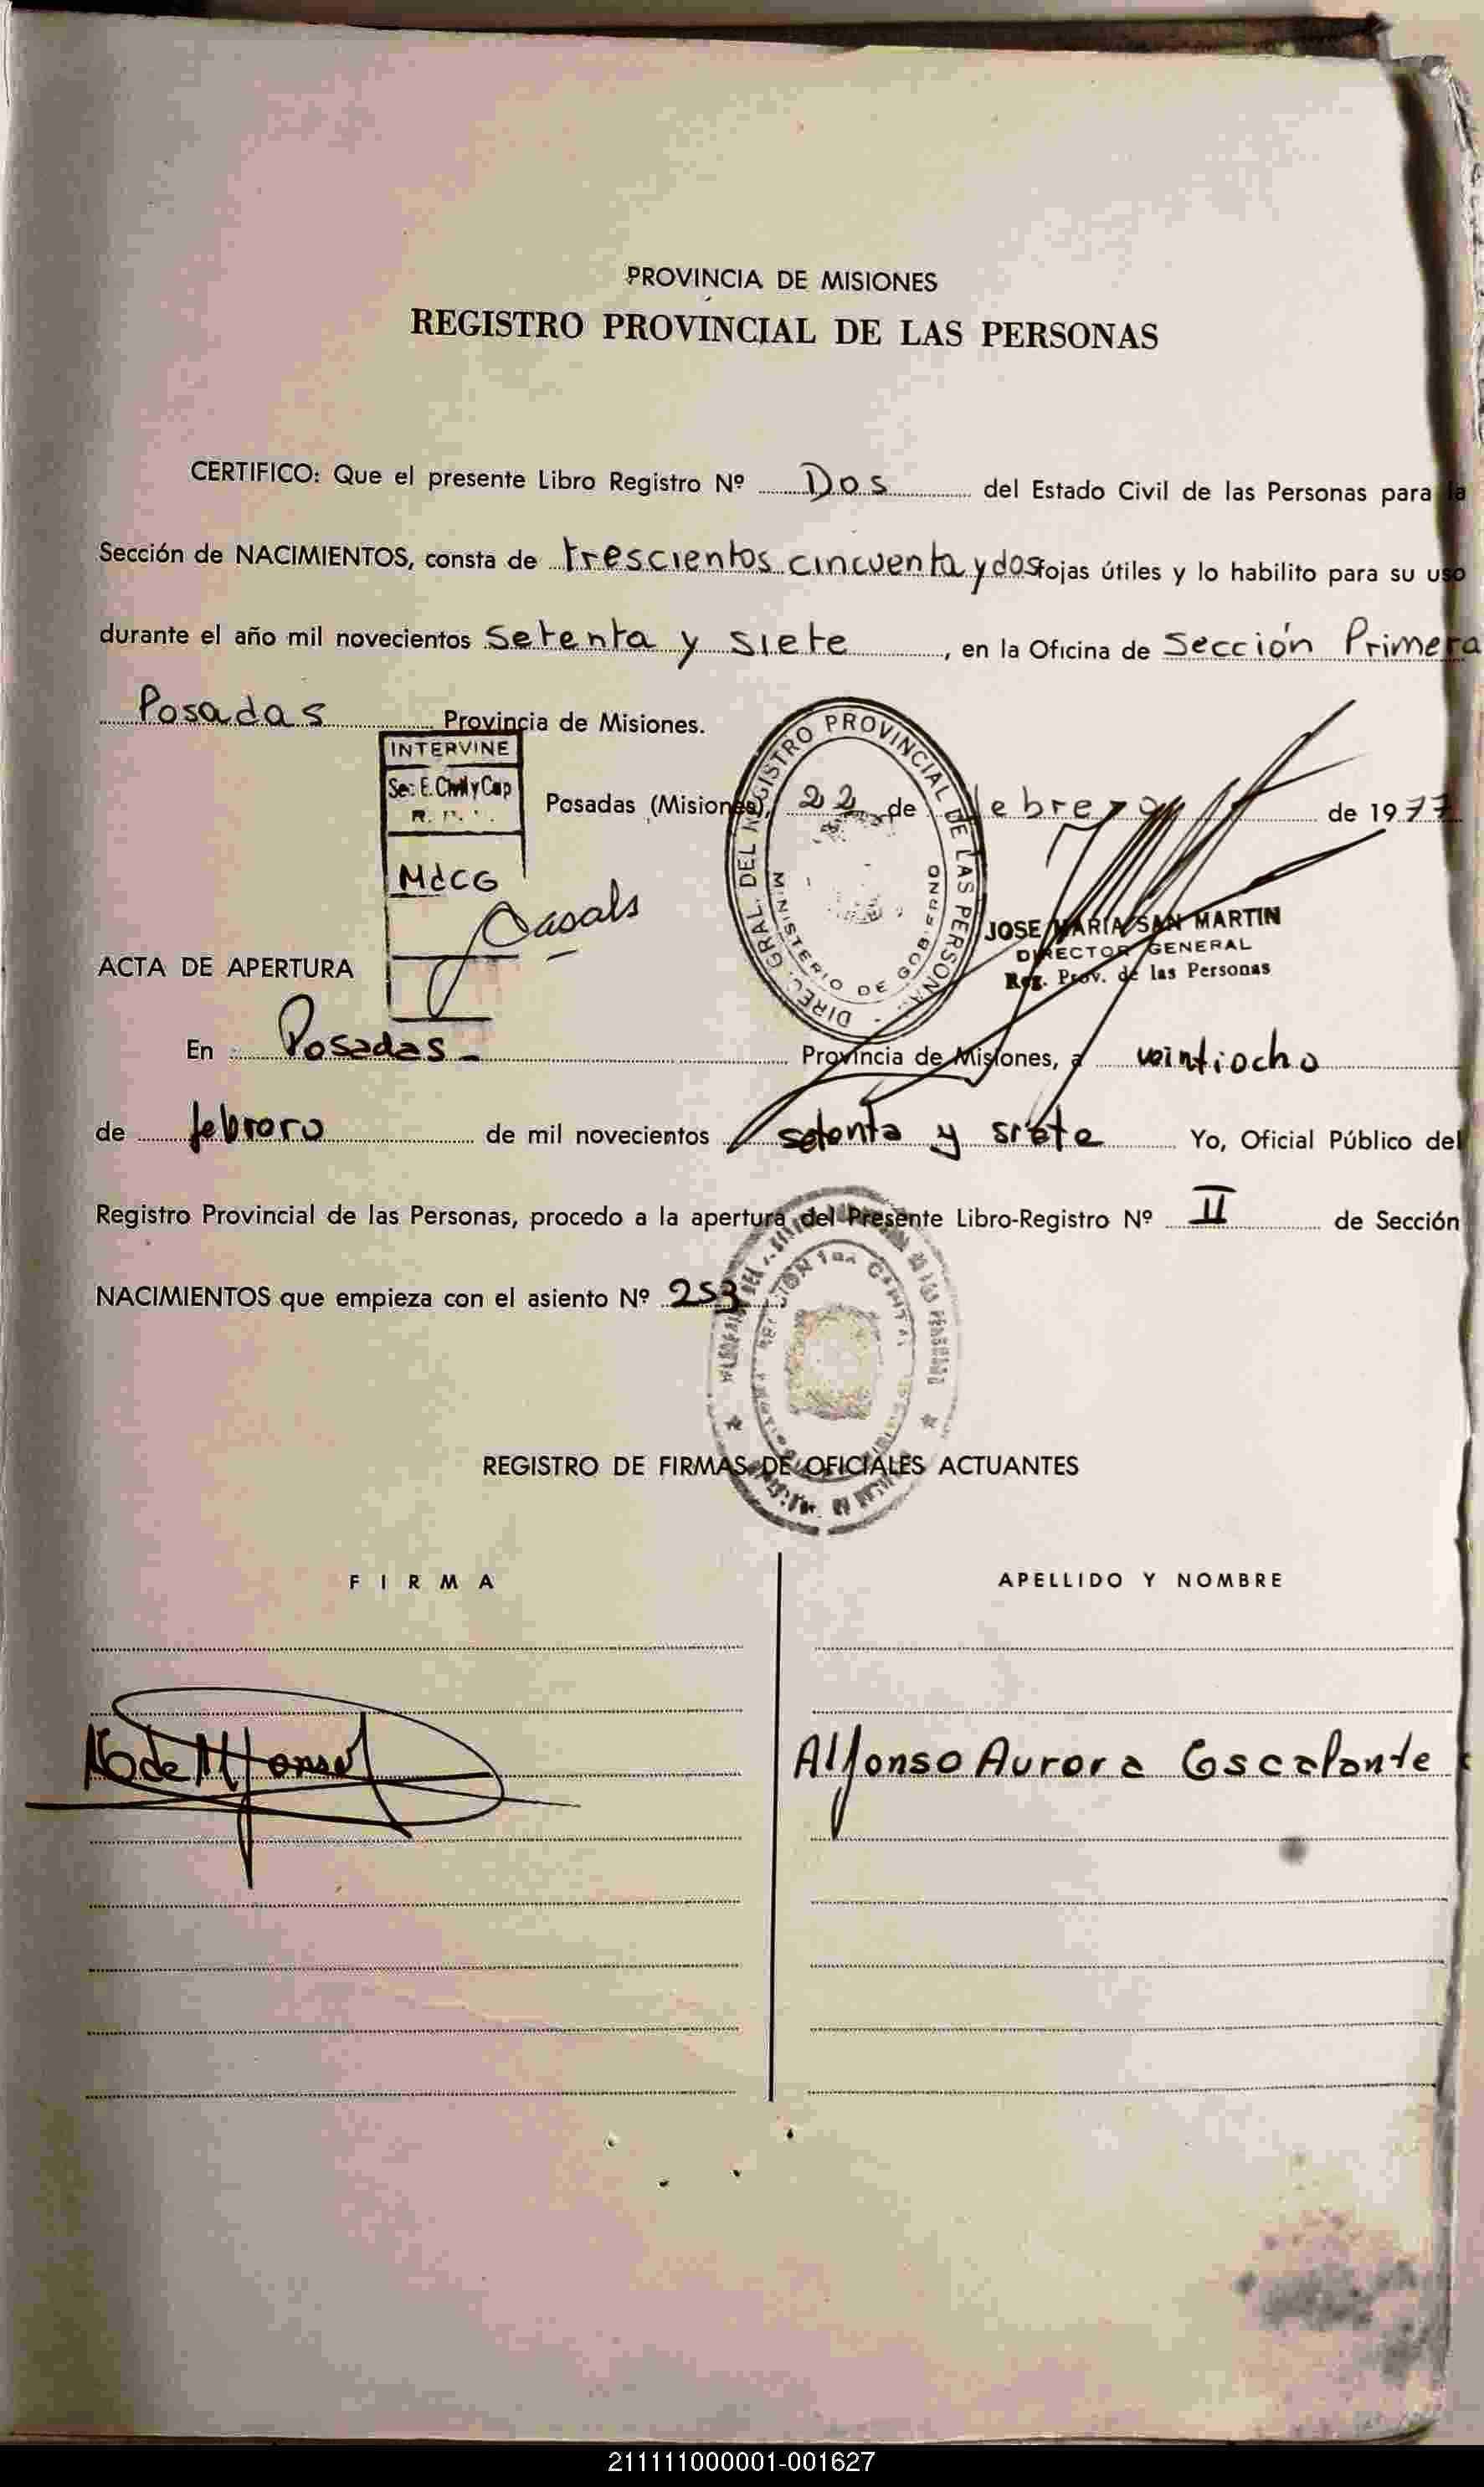 PROVINCIA DE MISIONES
REGISTRO PROVINCIAL DE LAS PERSONAS
CERTIFICO: Que el presente Libro Registro Nº Dos del Estado Civil de las Personas para la
Sección de NACIMIENTOS, consta de trescientos cincuenta y dos fojas útiles y lo habilito para su uso
durante el año mil novecientos Setenta y siete, en la Oficina de Sección Primera
Posadas Provincia de Misiones.
INTERVINE
Sec. E. Civil y Cap
MdCG
Casals
Posadas (Misiones), 22 de febrero de 1977
DIREC. GRAL. DEL REGISTRO PROVINCIAL DE LAS PERSONAS
MINISTERIO DE GOBIERNO
JOSE MARIA SAN MARTIN
DIRECTOR GENERAL
Reg. Prov. de las Personas
ACTA DE APERTURA
En Posadas - Provincia de Misiones, a veintiocho
de febrero de mil novecientos setenta y siete Yo, Oficial Público del
Registro Provincial de las Personas, procedo a la apertura del Presente Libro-Registro Nº II de Sección
NACIMIENTOS que empieza con el asiento Nº 253
REGISTRO DE FIRMAS DE OFICIALES ACTUANTES
FIRMA APELLIDO Y NOMBRE
Alfonso Aurora Escalante
211111000001-001627